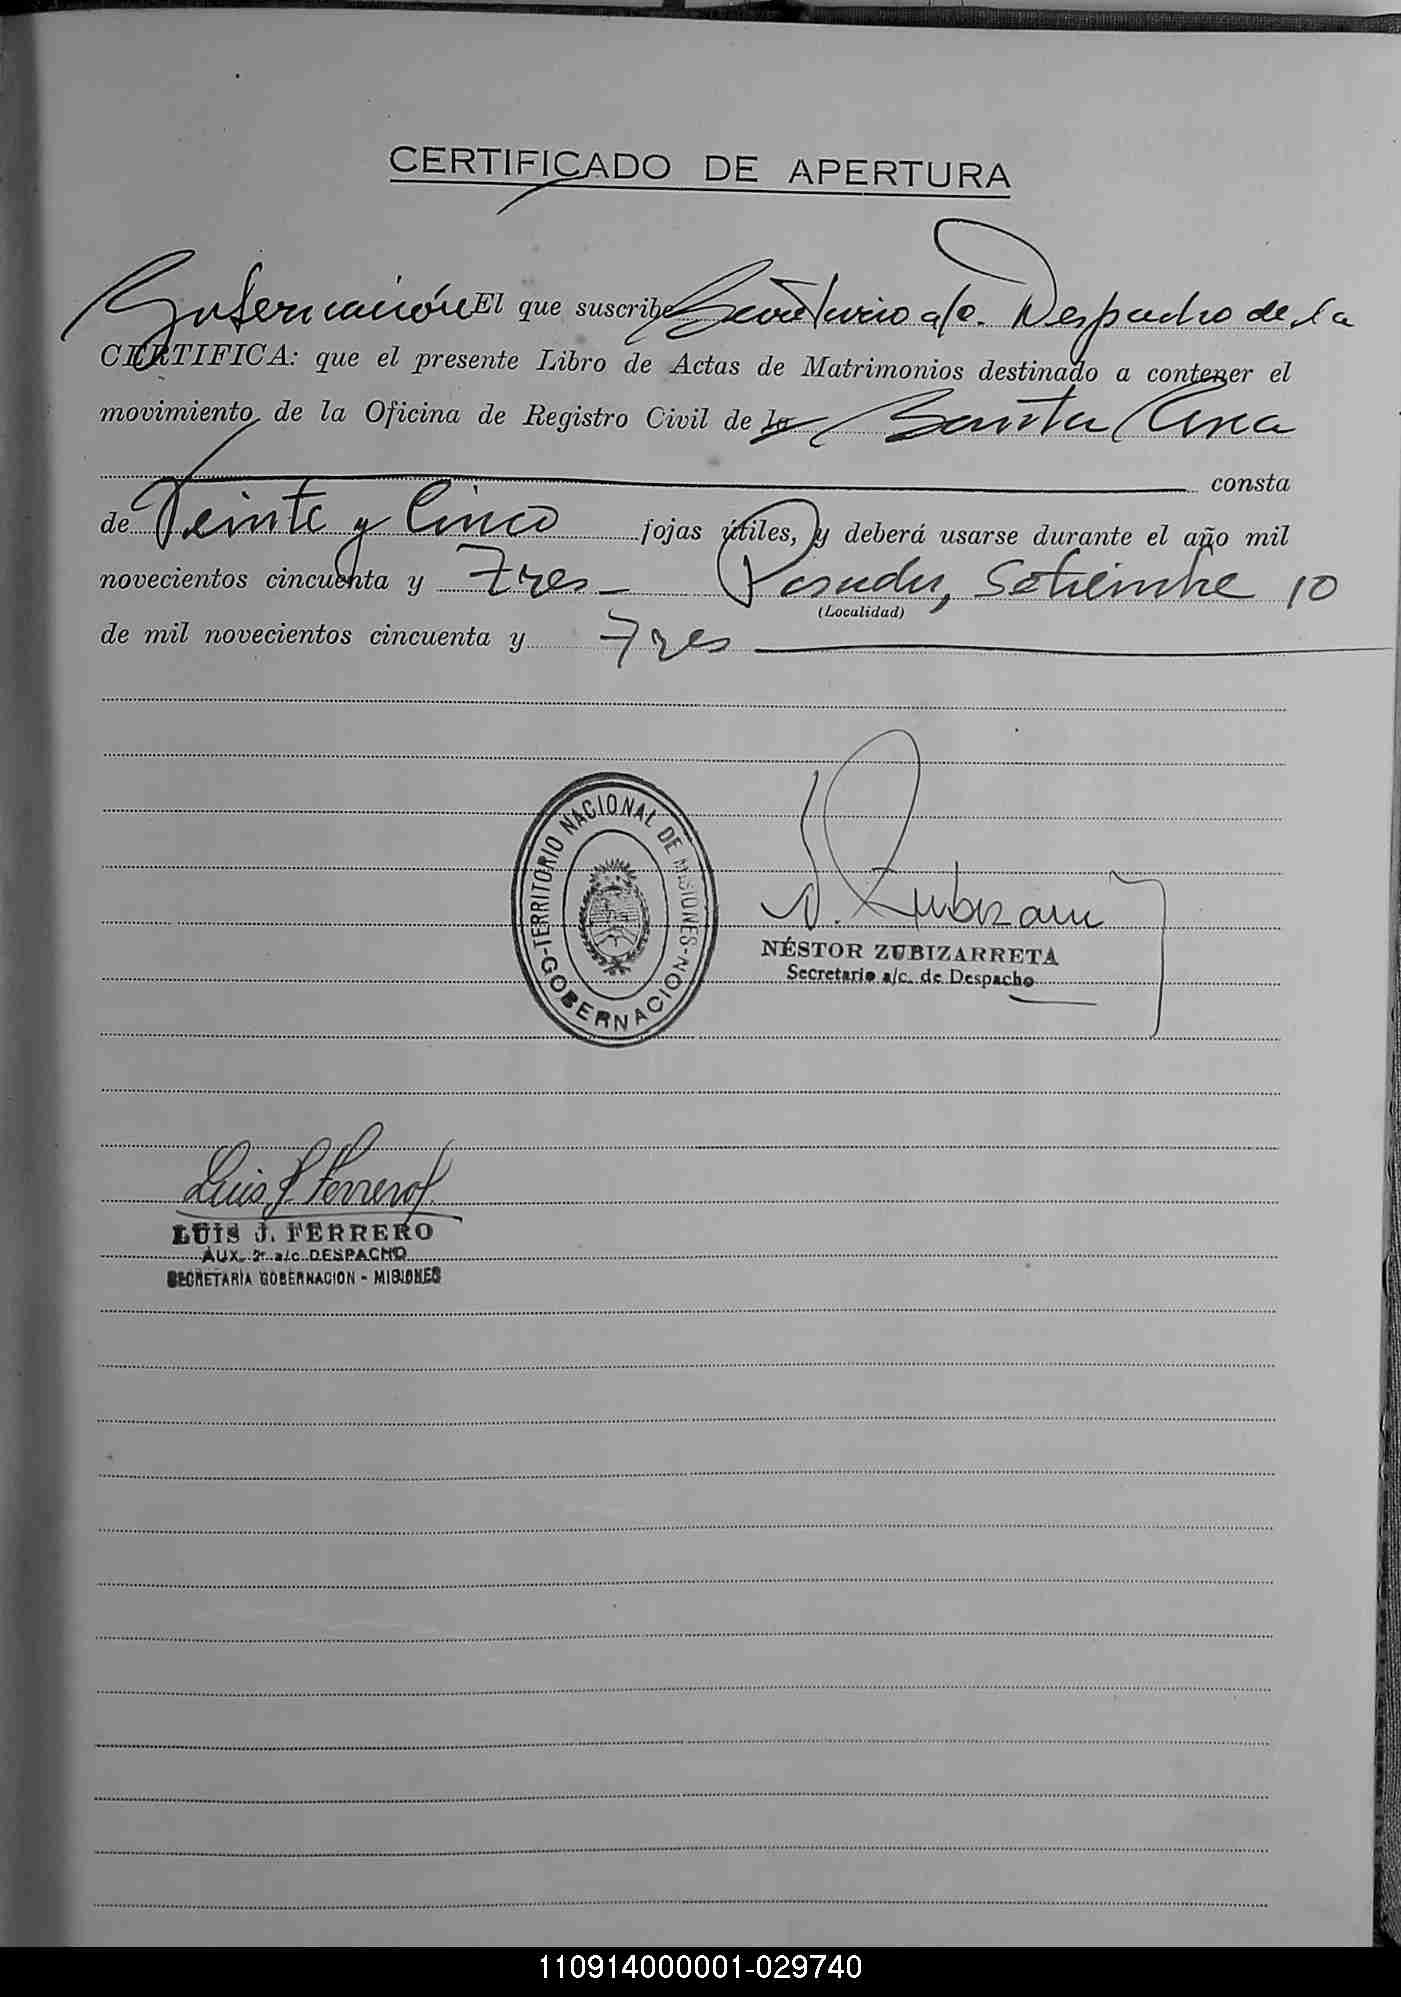 CERTIFICADO DE APERTURA
Gobernación El que suscribe Secretario a/c. Despacho de la
CERTIFICA: que el presente Libro de Actas de Matrimonios destinado a contener el
movimiento de la Oficina de Registro Civil de la Santa Ana
consta
de Veinte y Cinco fojas útiles, y deberá usarse durante el año mil
novecientos cincuenta y Tres Posadas, Setiembre 10
(Localidad)
de mil novecientos cincuenta y Tres
TERRITORIO NACIONAL DE MISIONES - GOBERNACION
N. Zubizarreta
NÉSTOR ZUBIZARRETA
Secretario a/c. de Despacho
Luis J. Ferrero
LUIS J. FERRERO
AUX. 2º a/c DESPACHO
SECRETARIA GOBERNACION - MISIONES
110914000001-029740